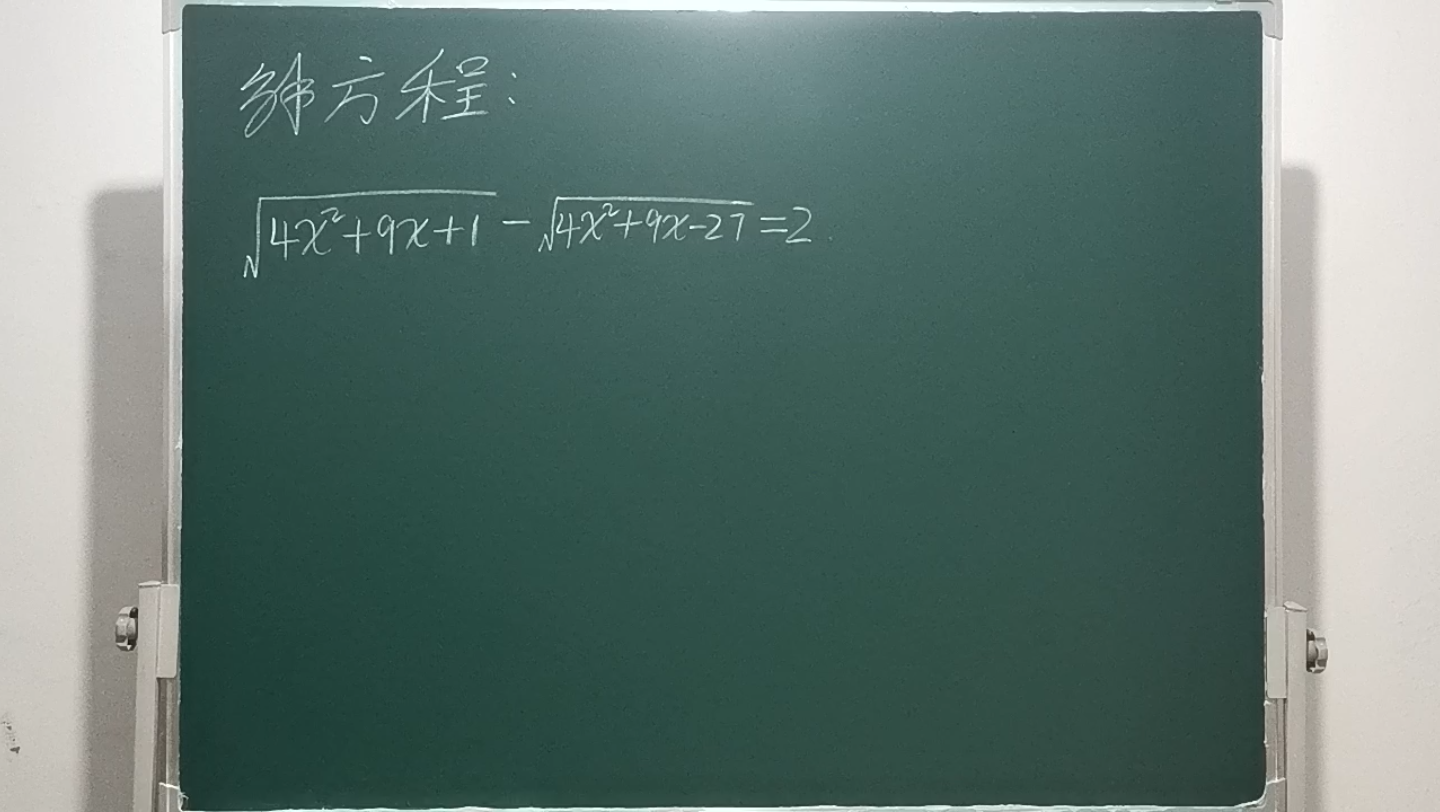 解方程:
√(4x²+9x+1) - √(4x²+9x-27) = 2